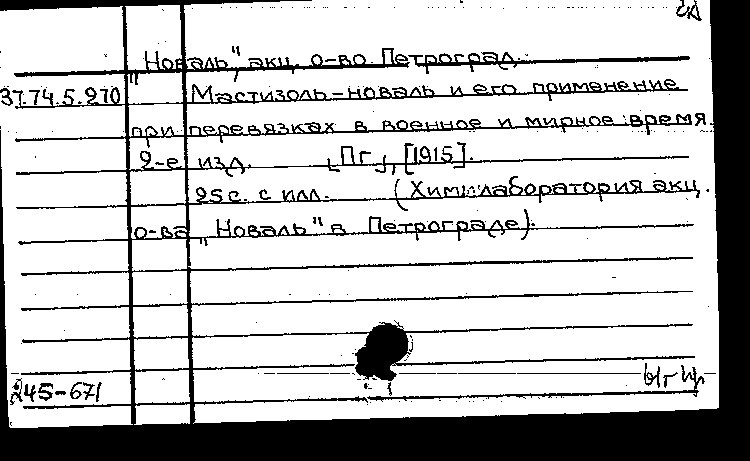 „Новаль", акц. о-во. Петроград.
37.74.5.270 Мастизоль-новаль и его применение
при перевязках в военное и мирное время.
2-е изд. [Пг], [1915].
25 с. с илл. (Хим. лаборатория акц.
о-ва „Новаль" в Петрограде).
245-671